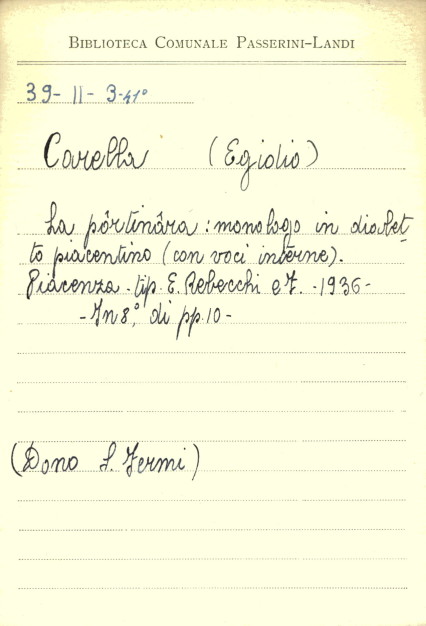 BIBLIOTECA COMUNALE PASSERINI-LANDI
39- II- 3-41°
Carella (Egidio)
La pôrtinära: monologo in dialet-
to piacentino (con voci interne).
Piacenza - tip. E. Rebecchi e F. - 1936 -
- In 8°, di pp. 10 -
(Dono S. Fermi)